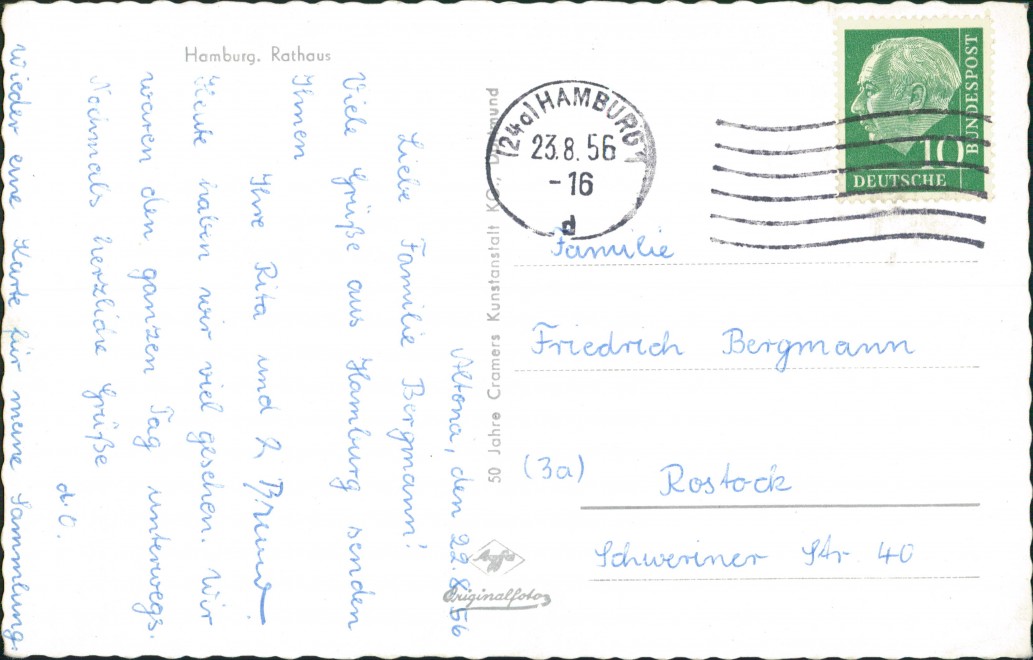 Hamburg. Rathaus
Altona, den 22.8.56
Liebe Familie Bergmann!
Viele Grüße aus Hamburg senden
Ihnen
Ihre Rita und
Heute haben wir viel gesehen. Wir
waren den ganzen Tag unterwegs.
Nochmals herzliche Grüße
d. O.
Wieder eine Karte für meine Sammlung.
50 Jahre Cramers Kunstanstalt KG., Dortmund
Agfa
Originalfoto
(24a) HAMBURG
23.8.56
-16
d
10
DEUTSCHE
BUNDESPOST
Familie
Friedrich Bergmann
(3a) Rostock
Schweriner Str. 40